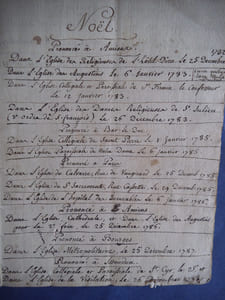 Noël
Prononcés à Amiens
Dans l'Eglise des Religieuses de l'Hôtel-Dieu le 25 Décembre
Dans l'Eglise des Augustins le 6 Janvier 1783.
Dans l'Eglise Collégiale et Paroissiale de St Firmin le Confesseur
le 12 Janvier 1783.
Dans l'Eglise des Dames Religieuses de Ste
ordre de S. françois) le 26 Décembre 1783.
Prononcé à Bar le Duc
Dans l'Eglise Collégiale de Saint Pierre le 1 Janvier 1785.
Dans l'Eglise Paroissiale de Notre Dame le 6 Janvier 1785
Prononcé à Paris
Dans l'Eglise du Calvaire, Rue de Vaugirard le 25 Décemb 1785
Dans l'Eglise du St Sacrement, Rue Cassette le 29 Décemb 1785.
Dans l'Eglise de l'hôpital des Incurables le 6 Janvier 1786.
Prononcé à Amiens
Dans l'Eglise Cathédrale, et Dans l'Eglise des Augustins
pour la 2e fois le 25 Décembre 1786.
Prononcé à Bourges
Dans l'Eglise Métropolitaine le 25 Décembre 1787.
Prononcé à
Dans l'Eglise Collégiale et Paroissiale de St Cyr le 25 et
Dans l'Eglise de la Visitation le 26 Décembre